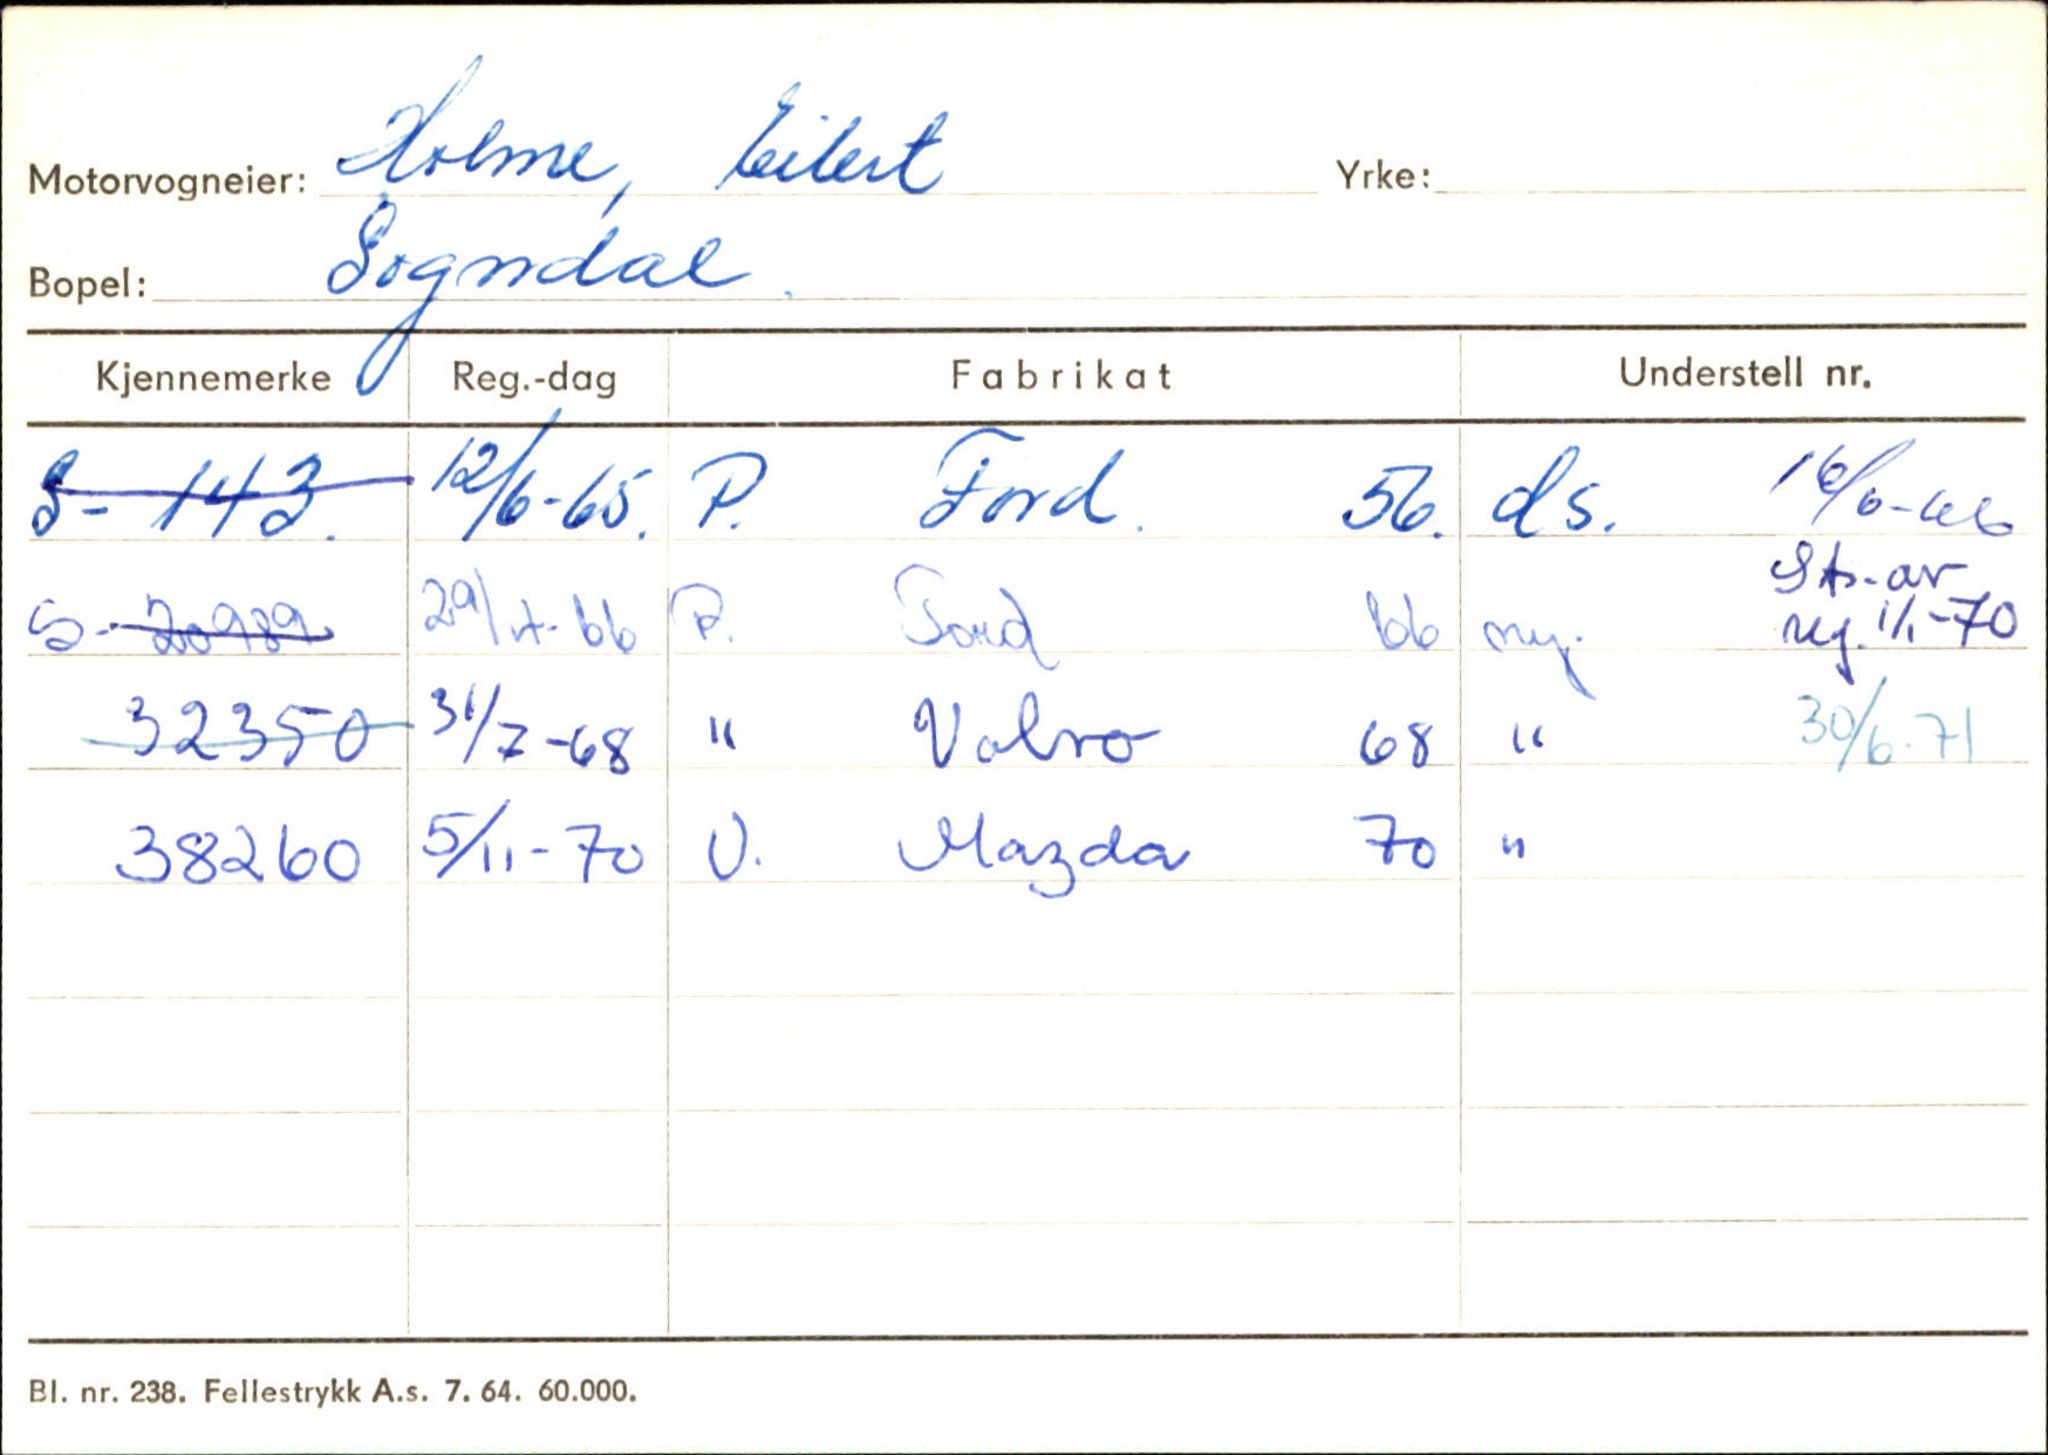 Motorvogneier: Holme, Eilert Yrke:
Bopel: Sogndal.
Kjennemerke Reg.-dag Fabrikat Understell nr.
S- 143. 12/6-65. P. Ford. 56. ds. 16/6-66
S- 20989 29/4-66 P. Ford 66 ny. Str. av reg. 1/1-70
32350 31/7-68 " Volvo 68 " 30/6-71
38260 5/11-70 V. Mazda 70 "
Bl. nr. 238. Fellestrykk A.s. 7. 64. 60.000.